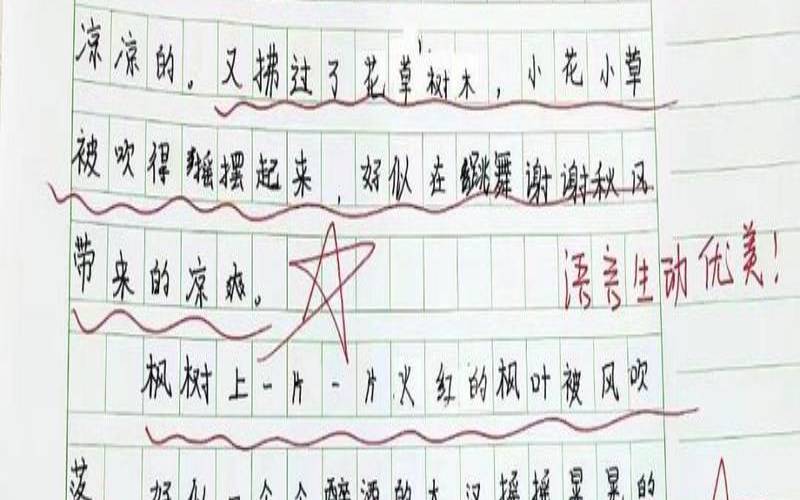 凉凉的。又拂过了花草树木，小花小草
被吹得摇摆起来，好似在跳舞谢谢秋风
带来的凉爽。
语言生动优美！
枫树上一片一片火红的枫叶被风吹
落，好似一个个醉酒的大汉摇摇晃晃的